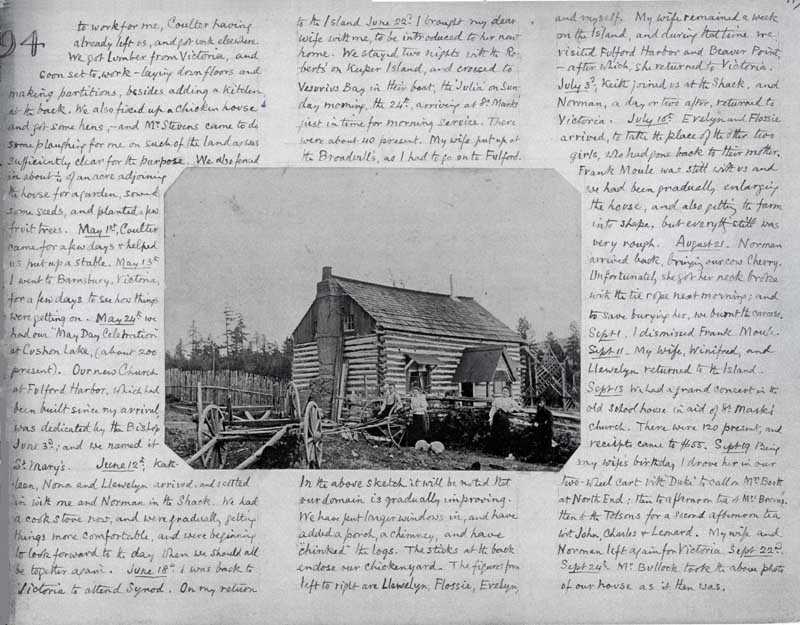 94
to work for me, Coulter having
already left us, and got work elsewhere.
We got lumber from Victoria, and
soon set to work - laying down floors and
making partitions, besides adding a kitchen
at the back. We also fixed up a chicken house
and got some hens, - and Mr Stevens came to do
some ploughing for me on such of the land as was
sufficiently clear for the purpose. We also fenced
in about ½ of an acre adjoining
the house for a garden, sowed
some seeds, and planted a few
fruit trees. May 1st, Coulter
came for a few days & helped
us put up a stable. May 13th
I went to Barnsbury, Victoria,
for a few days to see how things
were getting on. May 24th we
had our "May Day Celebration"
at Cushon Lake, (about 200
present). Our new Church
at Fulford Harbor, which had
been built since my arrival,
was dedicated by the Bishop
June 3d; and we named it
St Mary's. June 12th, Kath-
leen, Nona and Llewelyn arrived, and settled
in with me and Norman in the Shack. We had
a cook stove now, and were gradually getting
things more comfortable, and were beginning
to look forward to the day when we should all
be together again. June 18th I was back to
Victoria to attend Synod. On my return
to the Island June 22d I brought my dear
wife with me, to be introduced to her new
home. We stayed two nights with the Ro-
berts' on Kuper Island, and crossed to
Vesuvius Bay in their boat, the 'Julia' on Sun-
day morning, the 24th, arriving at St Mark's
just in time for morning service. There
were about 40 present. My wife put up at
the Broadwell's, as I had to go on to Fulford.
In the above sketch it will be noted that
our domain is gradually improving.
We have put larger windows in, and have
added a porch, a chimney, and have
"chinked" the logs. The sticks at the back
enclose our chickenyard. The figures from
left to right are Llewelyn, Flossie, Evelyn,
and myself. My wife remained a week
on the Island, and during that time we
visited Fulford Harbor and Beaver Point,
- after which, she returned to Victoria.
July 3d, Keith joined us at the Shack, and
Norman, a day or two after, returned to
Victoria. July 10th Evelyn and Flossie
arrived, to take the place of the other two
girls, who had gone back to their mother.
Frank Moule was still with us and
we had been gradually enlarging
the house, and also getting the farm
into shape, but everyth still was
very rough. August 21. Norman
arrived back, bringing our cow Cherry.
Unfortunately she got her neck broke
with the tie rope next morning; and
to save burying her, we burnt the carcase.
Sept 1. I dismissed Frank Moule.
Sept 11. My wife, Winifred, and
Llewelyn returned to the Island.
Sept 13 We had a grand concert in the
old schoolhouse in aid of St Mark's
church. There were 120 present, and
receipts came to $55. Sept 19 Being
my wife's birthday I drove her in our
two-wheel cart with 'Duke' to call on Mrs
at North End; then to afternoon tea at Mrs
then to the Tolsons for a second afternoon tea
with John, Charles & Leonard. My wife and
Norman left again for Victoria Sept 22d.
Sept 24th Mr Bullock took the above photo
of our house as it then was.